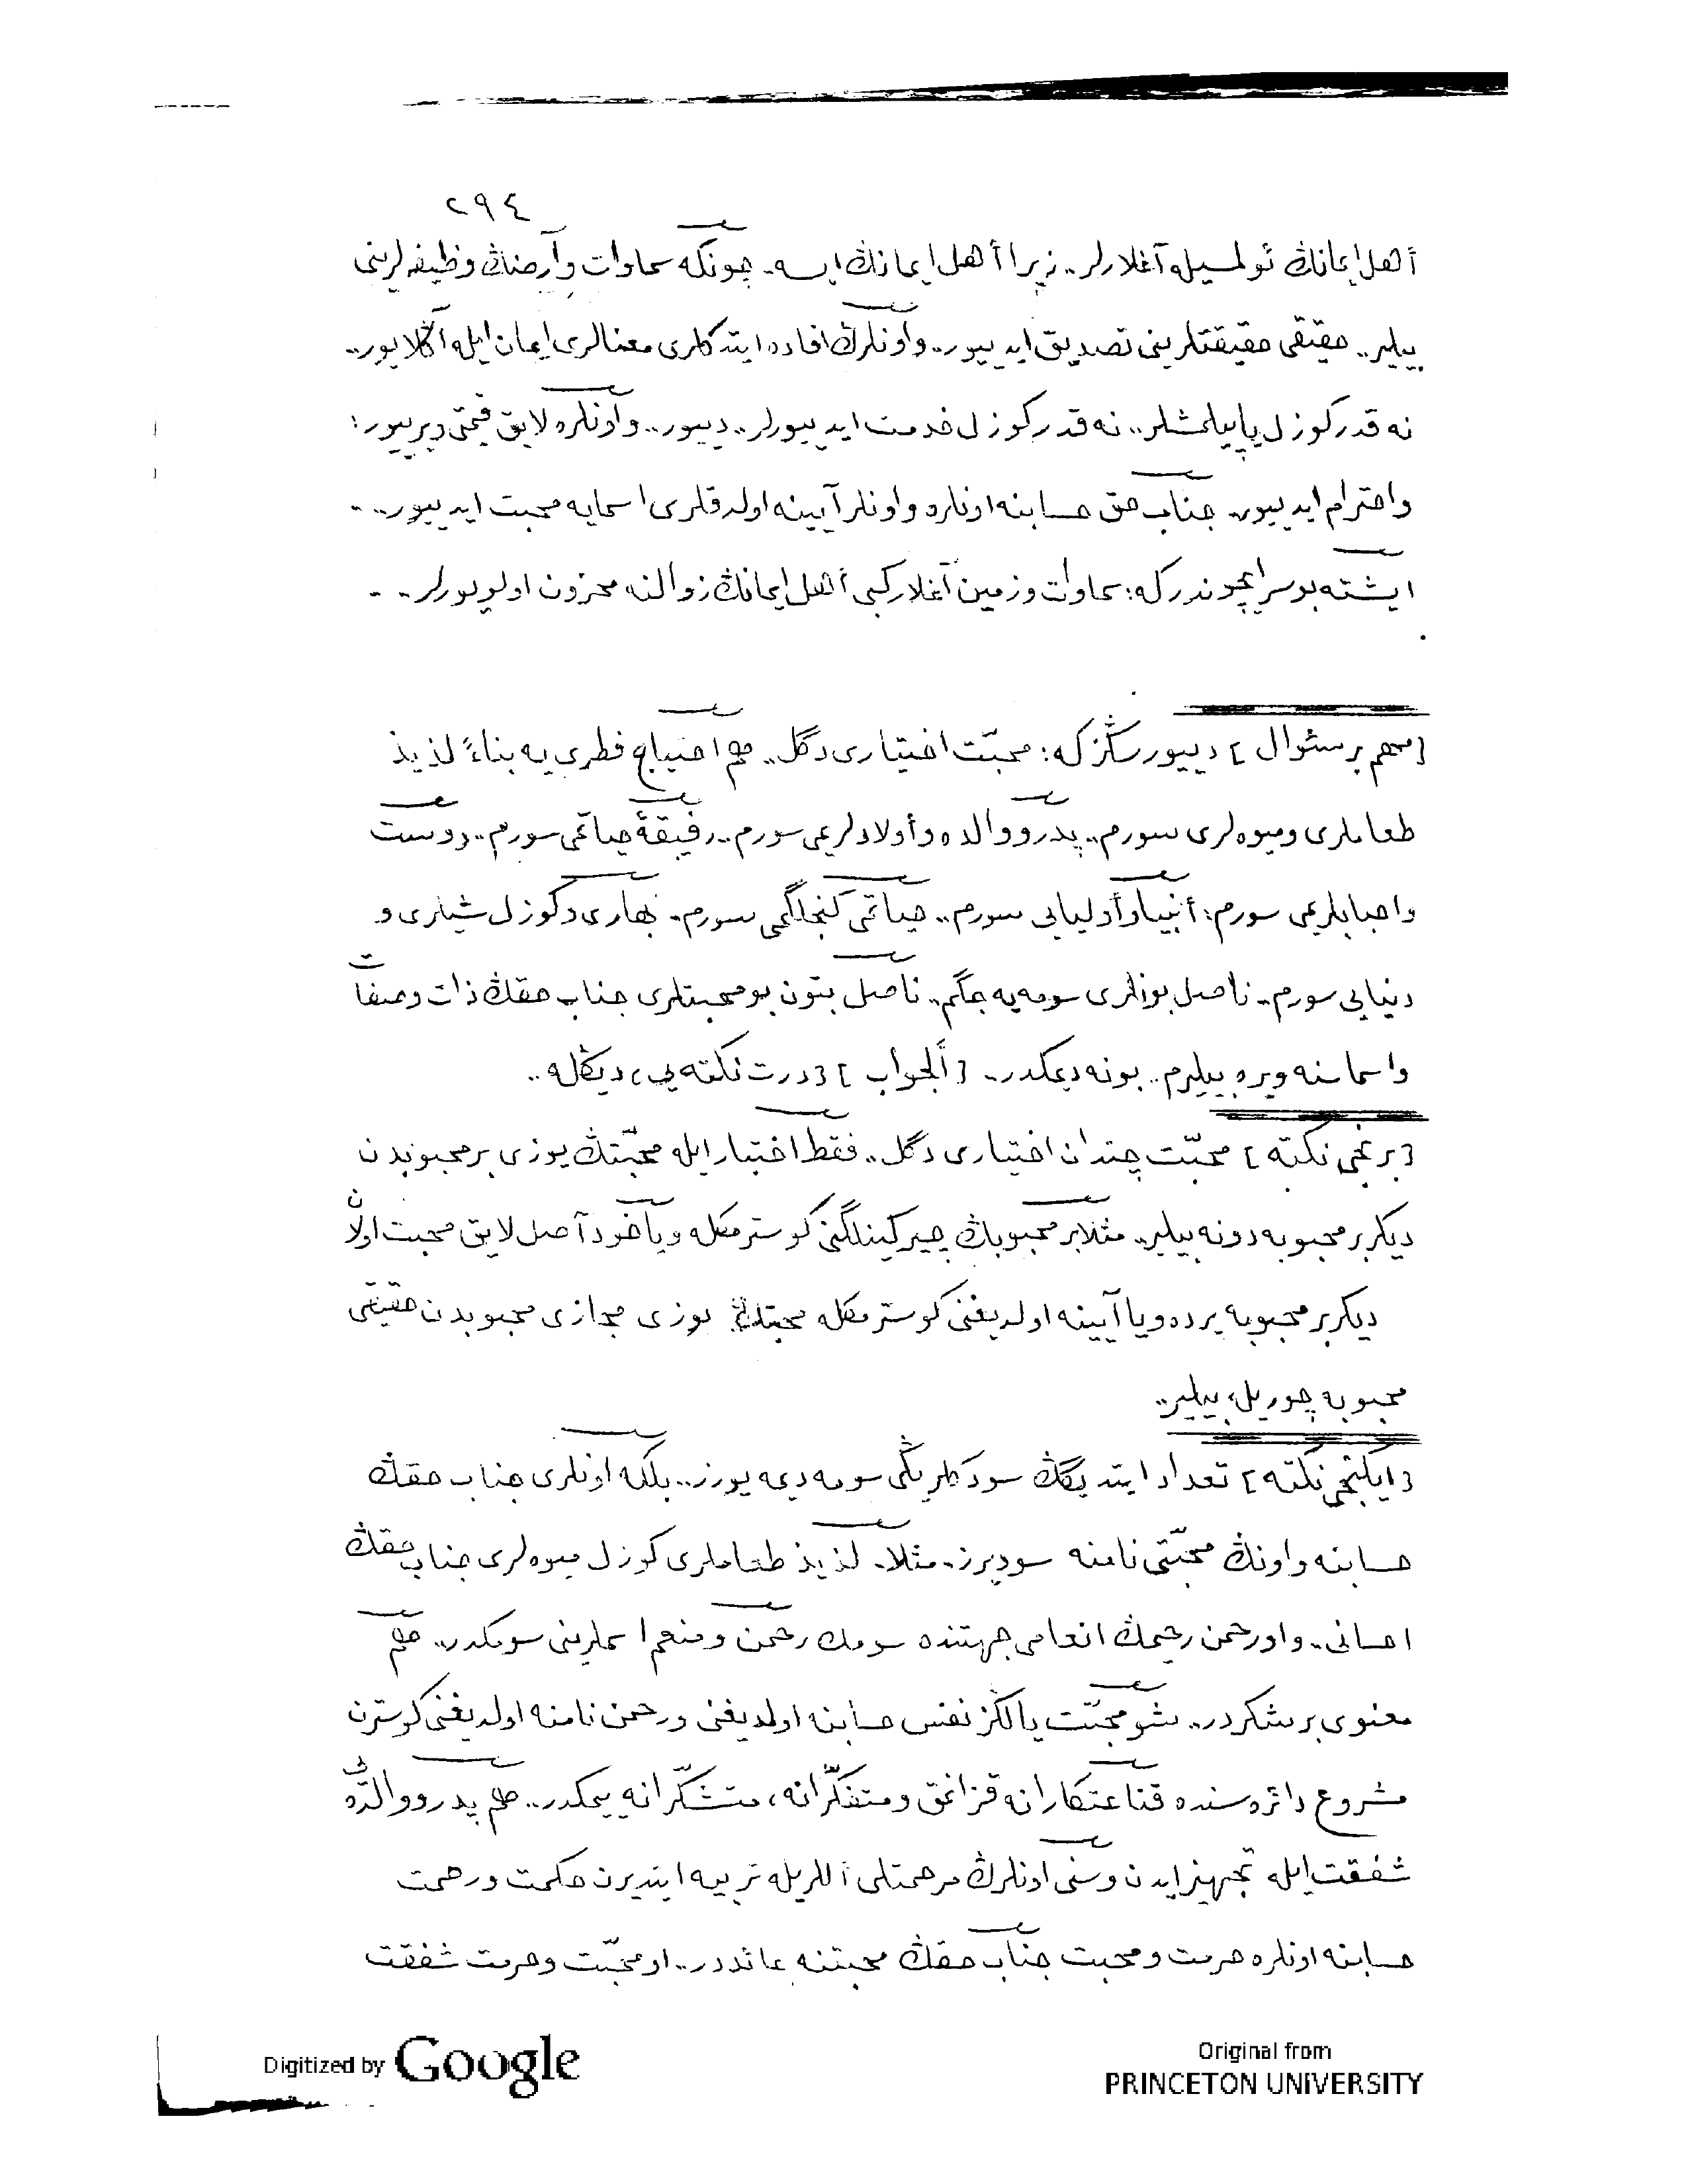 ٢٩٤
أهل ايمانڭ ئولمسيله آغلارلر.. زيرا أهل ايمانڭ ايسه.. چونكه سماوات وأرضڭ وظيفه لرينى
بيلير.. حقيقى حقيقتلرينى تصديق ايدييور.. واونلرڭ افاده ايتدكلرى معنالرى ايمان ايله آڭلايور..
نه قدر كوزل ياپيلمشلر.. نه قدر كوزل خدمت ايدييورلر.. دييور.. واونلره لايق قيمتى ويرييور:
واحترام ايدييور.. جناب حق حسابنه اونلره واونلر آيينه اولدقلرى اسمايه محبت ايدييور..
ايشته بوسر ايچوندركه: سماوات وزمين آغلار كبى أهل ايمانڭ زوالنه محزون اولويورلر..
[مهم بر سئوال] دييورسڭزكه: محبّت اختيارى دگل.. هم احتياج فطرى يه بناءً لذيذ
طعاملرى وميوه لرى سورم.. پدر ووالده وأولادلريمى سورم.. رفيقهٔ حياتمى سورم.. دوست
واحبابلريمى سورم: أنبيا وأوليايى سورم.. حياتمى كنجلگمى سورم.. بهارى وكوزل شيلرى و
دنيايى سورم.. ناصل بونلرى سومه يه جگم.. ناصل بتون بو محبتلرى جناب حقڭ ذات وصفات
واسماسنه ويره بيليرم.. بونه ديمكدر.. [ألجواب] [درت نكته يى] ديڭله..
[برنجى نكته] محبّت چندان اختيارى دگل.. فقط اختيار ايله محبّتڭ يوزى بر محبوبدن
ديكر بر محبوبه دونه بيلير.. مثلا بر محبوبڭ چيركينلگنى كوسترمكله وياخود آصل لايق محبت اولان
ديكر بر محبوبه پرده ويا آيينه اولديغنى كوسترمكله محبتڭ يوزى مجازى محبوبدن حقيقى
محبوبه چوريله بيلير..
[ايكنجى نكته] تعداد ايتديگڭ سودكلريڭى سومه ديمه يورز.. بلكه اونلرى جناب حقڭ
حسابنه واونڭ محبّتى نامنه سوديرز.. مثلا.. لذيذ طعاملرى كوزل ميوه لرى جناب حقڭ
احسانى.. واو رحمن رحيمڭ انعامى جهتنده سومك رحمن ومنعم اسملرينى سومكدر.. هم
معنوى بر شكردر.. شو محبّت يالڭز نفس حسابنه اولمديغنى ورحمن نامنه اولديغنى كوسترن
مشروع دائره سنده قناعتكارانه قزانمق ومتفكّرانه، متشكّرانه ييمكدر.. هم پدر ووالده يى
شفقت ايله تجهيز ايدن وسنى اونلرڭ مرحمتلى أللريله تربيه ايتديرن حكمت ورحمت
حسابنه اونلره حرمت ومحبت جناب حقڭ محبتنه عائددر.. او محبّت وحرمت شفقت
Digitized by Google
Original from
PRINCETON UNIVERSITY